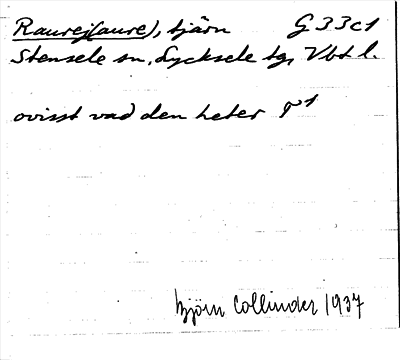 Raurej(aure), tjärn G 33c1
Stensele sn, Lycksele tg, Vbt l.
ovisst vad den heter
Björn Collinder 1937